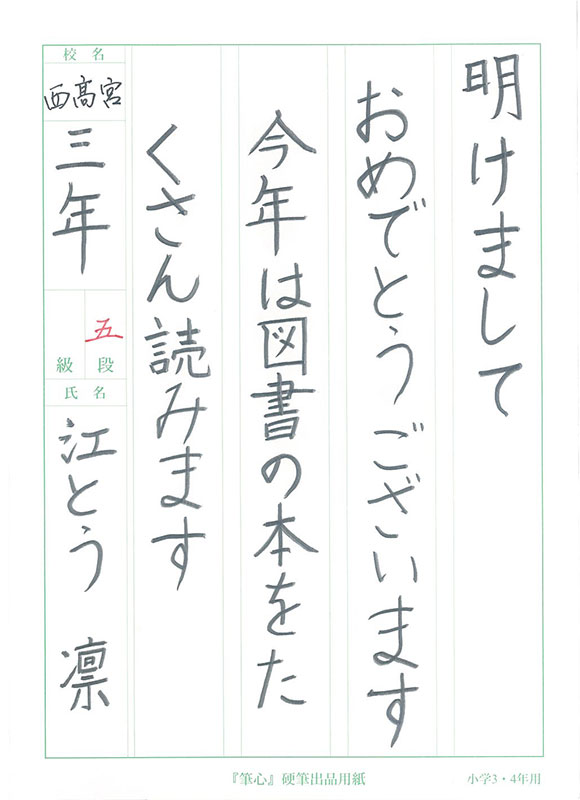 明けまして
おめでとうございます
今年は図書の本をた
くさん読みます
校名
西高宮
三年
五
級 段
氏名
江とう 凛
『筆心』硬筆出品用紙
小学3・4年用